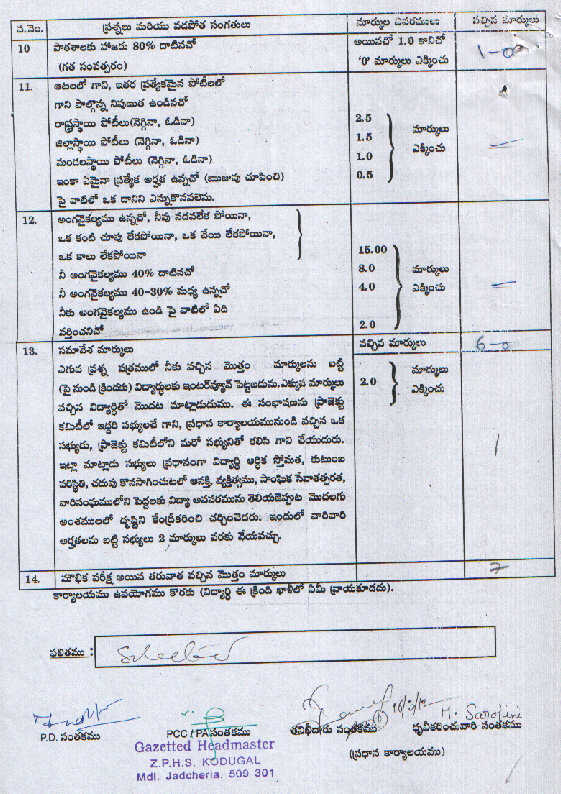 వ.నెం. ప్రశ్నలు మరియు వడపోత సంగతులు మార్కుల వివరములు వచ్చిన మార్కులు
10 పాఠశాలకు హాజరు 80% దాటినచో అయినచో 1.0 కానిచో 1-00
(గత సంవత్సరం) '0' మార్కులు ఎక్కించు
11. ఆటలలో గాని, ఇతర ప్రత్యేకమైన పోటీలలో
గాని పాల్గొన్న నిపుణత ఉండినచో
రాష్ట్రస్థాయి పోటీలు(నెగ్గినా, ఓడినా) 2.5
జిల్లాస్థాయి పోటీలు (నెగ్గినా, ఓడినా) 1.5 మార్కులు
మండలస్థాయి పోటీలు (నెగ్గినా, ఓడినా) 1.0 ఎక్కించు
ఇంకా ఏమైనా ప్రత్యేక అర్హత ఉన్నచో (ఋజువు చూపించి) 0.5
పై వాటిలో ఒక దానిని ఎన్నుకొనవలెను.
12. అంగవైకల్యము ఉన్నచో, నీవు నడవలేక పోయినా,
ఒక కంటి చూపు లేకపోయినా, ఒక చేయి లేకపోయినా,
ఒక కాలు లేకపోయినా 15.00
నీ అంగవైకల్యము 40% దాటినచో 8.0 మార్కులు
నీ అంగవైకల్యము 40-30% మధ్య ఉన్నచో 4.0 ఎక్కించు
నీకు అంగవైకల్యము ఉండి పై వాటిలో ఏది
వర్తించనిచో 2.0
13. సమావేశ మార్కులు వచ్చిన మార్కులు 6-0
ఎగువ ప్రశ్న పత్రములో నీకు వచ్చిన మొత్తం మార్కులను బట్టి మార్కులు
(పై నుండి క్రిందకు) విద్యార్థులకు ఇంటర్వ్యూన్ పెట్టబడును.ఎక్కువ మార్కులు 2.0 ఎక్కించు
వచ్చిన విద్యార్థితో మొదట మాట్లాడుదుము. ఈ సంభాషణను ప్రాజెక్టు
కమిటీలో ఇద్దరి సభ్యులచే గాని, ప్రధాన కార్యాలయమునుండి వచ్చిన ఒక
సభ్యుడు, ప్రాజెక్టు కమిటీలోని మరో సభ్యునితో కలిసి గాని చేయుదురు. 1
ఇట్లా మాట్లాడు సభ్యులు ప్రధానంగా విద్యార్థి ఆర్థిక స్తోమత, కుటుంబ
పరిస్థితి, చదువు కొనసాగించుటలో ఆసక్తి, వ్యక్తిత్వము, సాంఘిక సేవాతత్పరత,
వారిసంఘములోని పెద్దలకు విద్యా అవసరమును తెలియజెప్పుట మొదలగు
అంశములలో దృష్టిని కేంద్రీకరించి చర్చించెదరు. ఇందులో వారివారి
అర్హతలను బట్టి సభ్యులు 2 మార్కులు వరకు వేయవచ్చు.
14. మౌఖిక పరీక్ష అయిన తరువాత వచ్చిన మొత్తం మార్కులు 7
కార్యాలయము ఉపయోగము కొరకు (విద్యార్థి ఈ క్రింది ఖాళీలో ఏమీ వ్రాయకూడదు).
ఫలితము : Selected
M. Sarojini
P.D. సంతకము PCC / PA సంతకము తనిఖీదారు సంతకము ధృవీకరించువారి సంతకము
Gazetted Headmaster (ప్రధాన కార్యాలయము)
Z.P.H.S. KODUGAL
Mdl. Jadcherla. 509 301